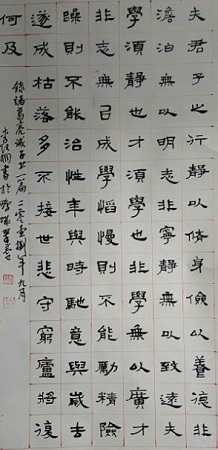 夫君子之行靜以脩身儉以養德非
澹泊無以明志非寧靜無以致遠夫
學須靜也才須學也非學無以廣才
非志無以成學慆慢則不能勵精險
躁則不能治性年與時馳意與歲去
遂成枯落多不接世悲守窮廬將復
何及
錄諸葛亮誡子書一篇二零壹捌年九月
書於